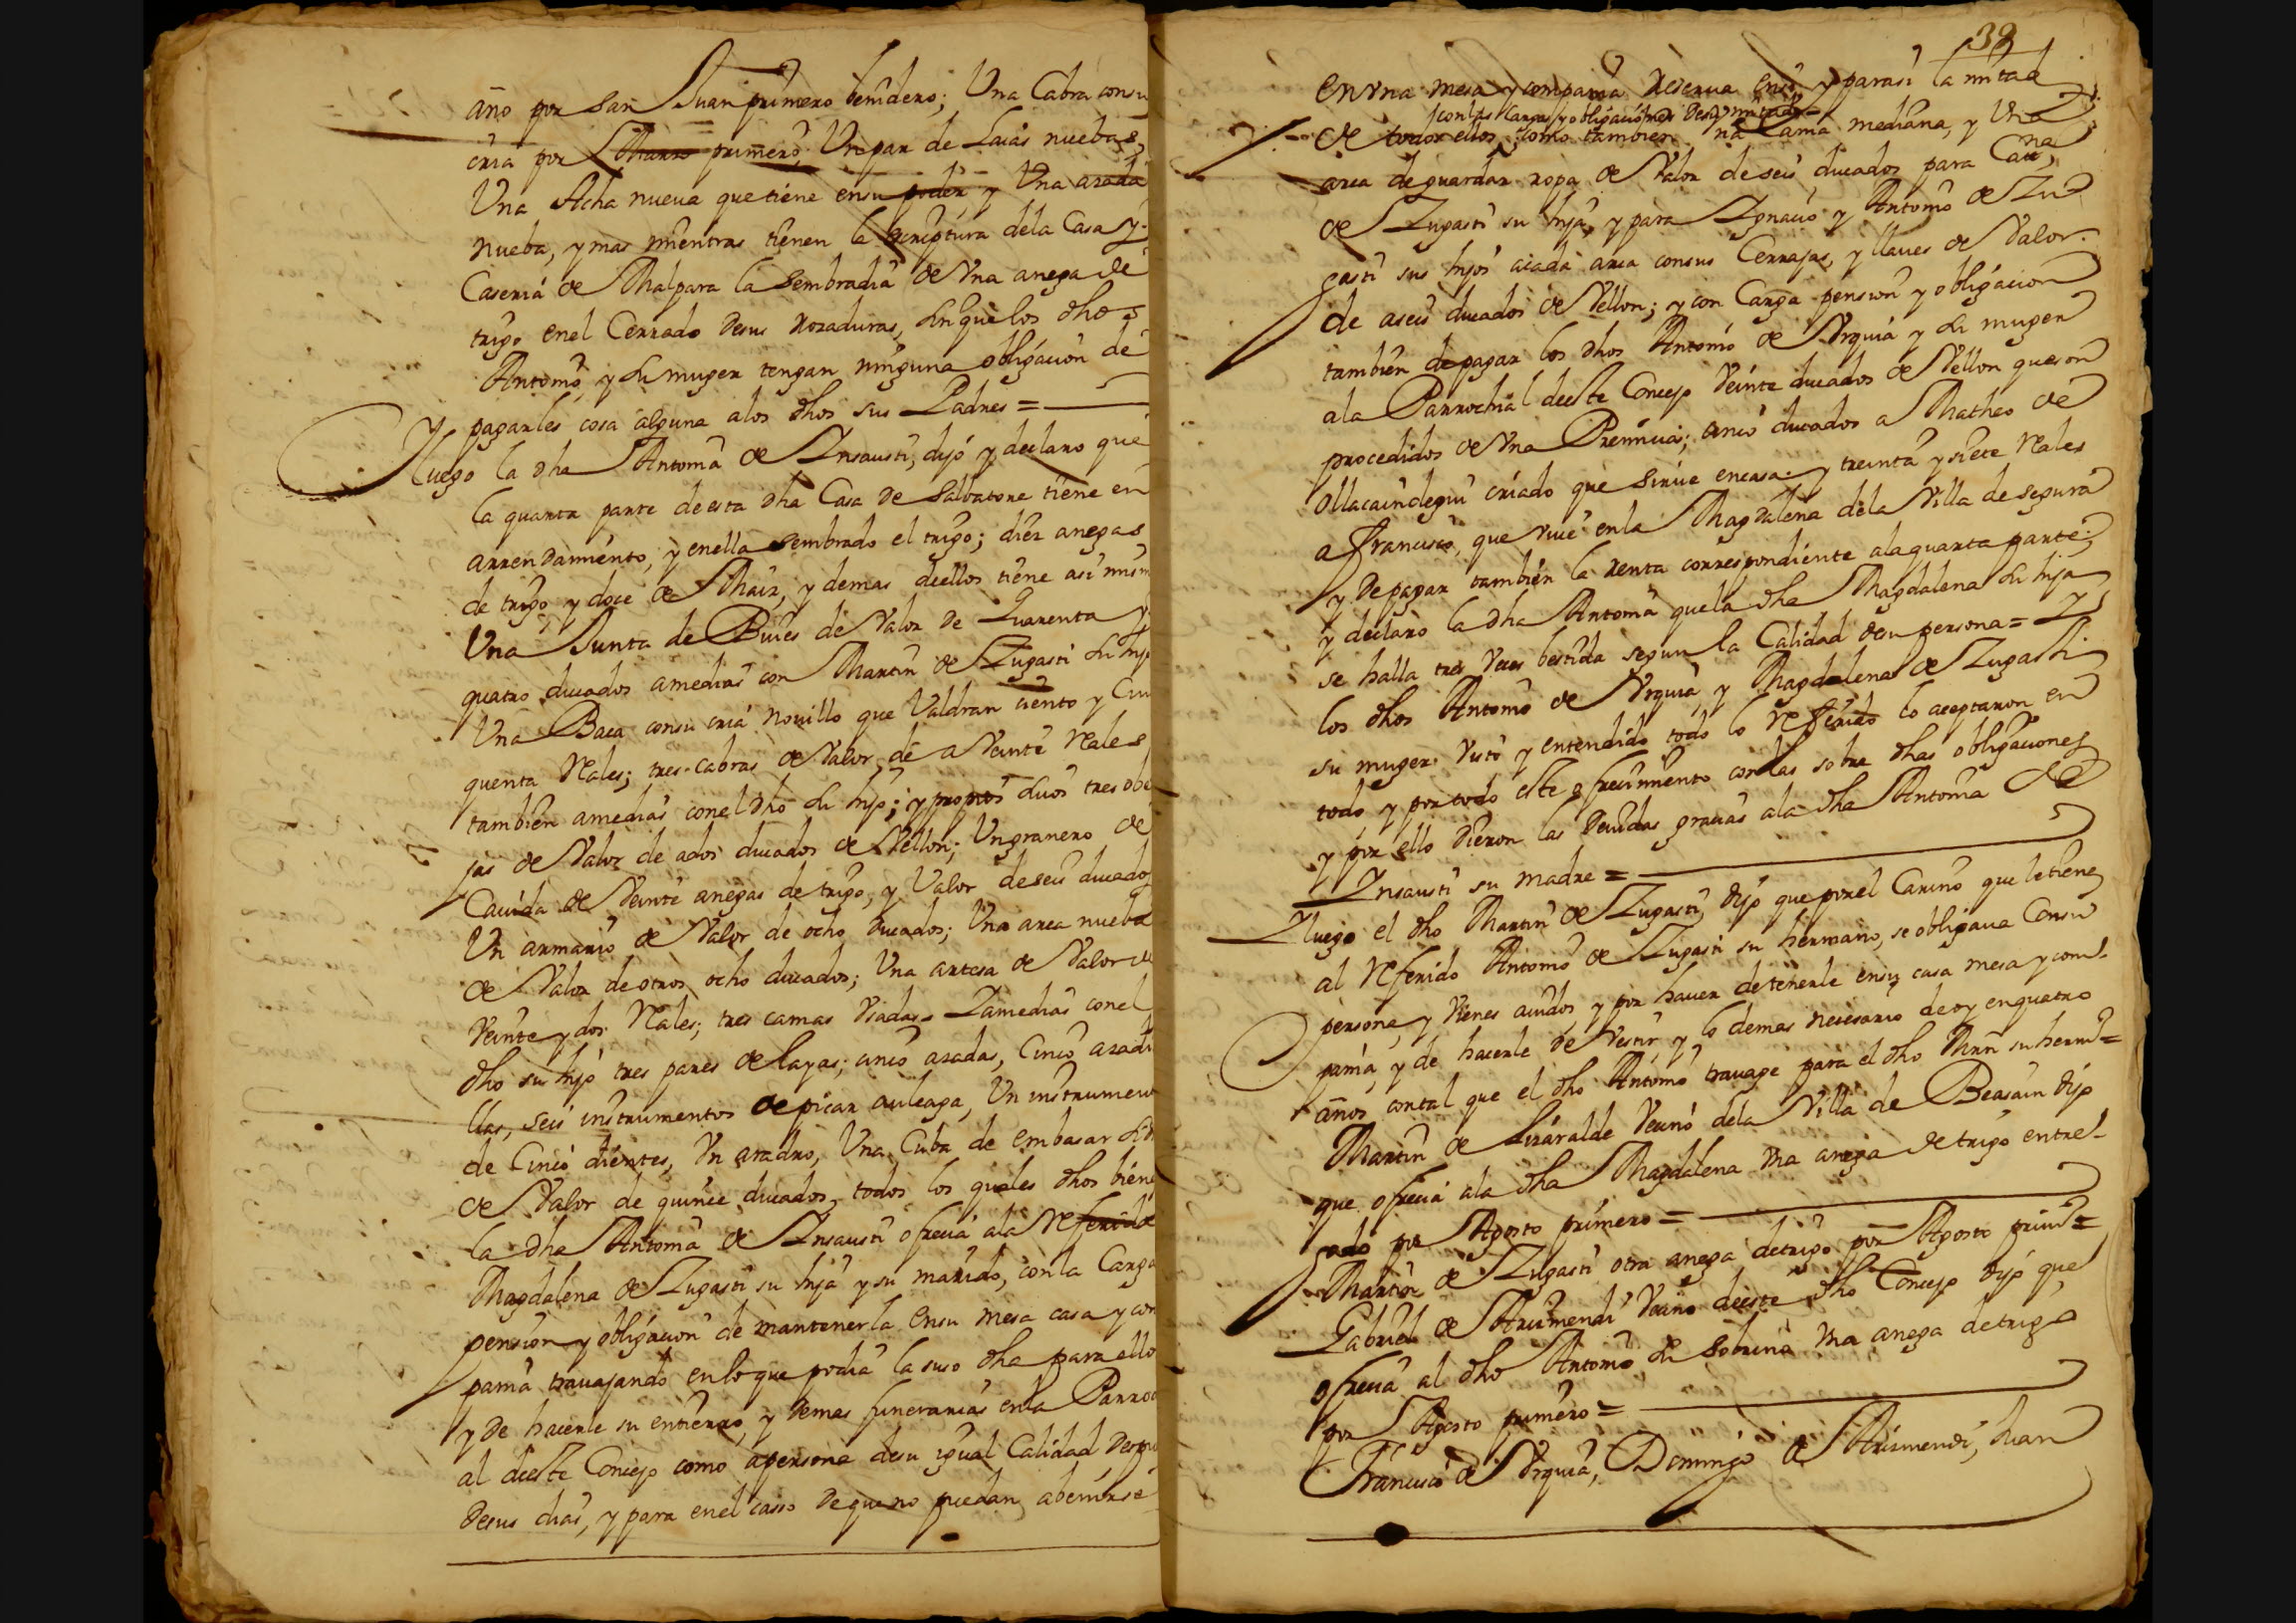 año por San Juan primero benidero; Una Cabra consu
cria por Marzo primero Un par de Laias nuebas,
Una Acha nueua que tiene ensu poder, y Una azada
nueba, y mas mientras tienen la escriptura dela Casa y
Caseria de Malpara la Sembradia de Vna anega de
trigo enel Cerrado desus Rozaduras, sin que los dhos
Antonio, y su muger tengan ninguna obligacion de
pagarles cosa alguna alos dhos sus Padres =
Y luego la dha Antonia de Insausti, dijo y declaro que
la quarta parte de esta dha Casa de Salbatore tiene en
arrendamiento, y enella sembrado el trigo; diez anegas
de trigo, y doce de Maiz, y demas deellos tiene asi mism
Una Junta de Buies de Valor de Quarenta y
quatro ducados amedias con Martin de Zugasti su hijo
Una Baca consu cria nouillo que Valdran ciento y Cin
quenta Reales; tres cabras de Valor de a Veinte Reales
tambien amedias conel dho su hijo; y propios suios tres obe
jas de Valor de ados ducados de Vellon; Un granero de
Cauida de Veinte anegas de trigo, y Valor de seis ducados
Un armario de Valor de ocho ducados; Una arca nueba
de Valor de otros ocho ducados; Una artesa de Valor de
Veinte y dos Reales; tres camas Vsadas Y amedias conel
dho su hijo tres pares de layas; cinco azadas, Cinco azadi
llas, seis instrumentos de picar auleaga, Un instrumen
de Cinco dientes, Vn aradro, Una Cuba de embasar
de Valor de quince ducados, todos los quales dhos biene
la dha Antonia de Insausti ofrecia ala Referida
Magdalena de Zugasti su hija y su marido, con la Carga
pension y obligacion de mantenerla ensu mesa casa y com
pania trauajando enlo que podia la suso dha para ello
y de hacerle su entierro, y demas funerarias enla Parroc
al deeste Concejo como apersona desu igual Calidad, despu
desus dias, y para enel casso de que no puedan abenirse
39
en vna mesa y compania Reserua ensi y parasi la mitad
con las Cargas y obligaciones desu mitad
de todos ellos, como tambien na Cama mediana, y Una
arca de guardar ropa de Valor de seis ducados para Cata
na
de Zugasti su hija, y para Ignacio y Antonio de Zu
gasti sus hijos acada arca consus Cerrajas, y llaues de Valor
de aseis ducados de Vellon; y con Carga pension y obligacion
tambien de pagar los dhos Antonio de Vrquia y su muger
ala Parrochial deeste Concejo Veinte ducados de Vellon que son
procedidos de Vna Premicia; cinco ducados a Matheo de
Ollacaindegui criado que Sirue encasa y treinta y siete Reales
a Francisco, que Viue enla Magdalena dela Villa de segura
y de pagar tambien la renta correspondiente ala quarta parte;
y declaro la dha Antonia que la dha Magdalena su hija
se halla tres Veces bestida segun la Calidad desu persona = Y
los dhos Antonio de Vrquia, y Magdalena de Zugasti
su muger Visto y entendido todo lo Referido lo aceptaron en
todo y por todo este ofrecimiento con las sobre dhas obligaciones
y por ello dieron las deuidas gracias ala dha Antonia de
Insausti su madre =
Y luego el dho Martin de Zugasti, dijo que por el Cariño que le tiene
al Referido Antonio de Zugasti su hermano, se obligaua Consu
persona, y Vienes auidos y por hauer detenerle ensu casa mesa y com-
pania, y de hacerle de Vestir, y lo demas necesario de oy en quatro
años con tal que el dho Antonio trauage para el dho Mrn su herm =
Martin de Lizaralde Vecino dela Villa de Beasain dijo
que ofrecia ala dha Magdalena Vna anega de trigo entre-
gado por Agosto primero =
Martin de Zugasti otra anega de trigo por Agosto prim =
Gabriel de Arismendi Vecino deeste dho Concejo dijo que
ofrecia al dho Antonio su sobrino Vna anega de trigo
por Agosto primero =
Francisco de Vrquia, Domingo de Arismendi, Juan